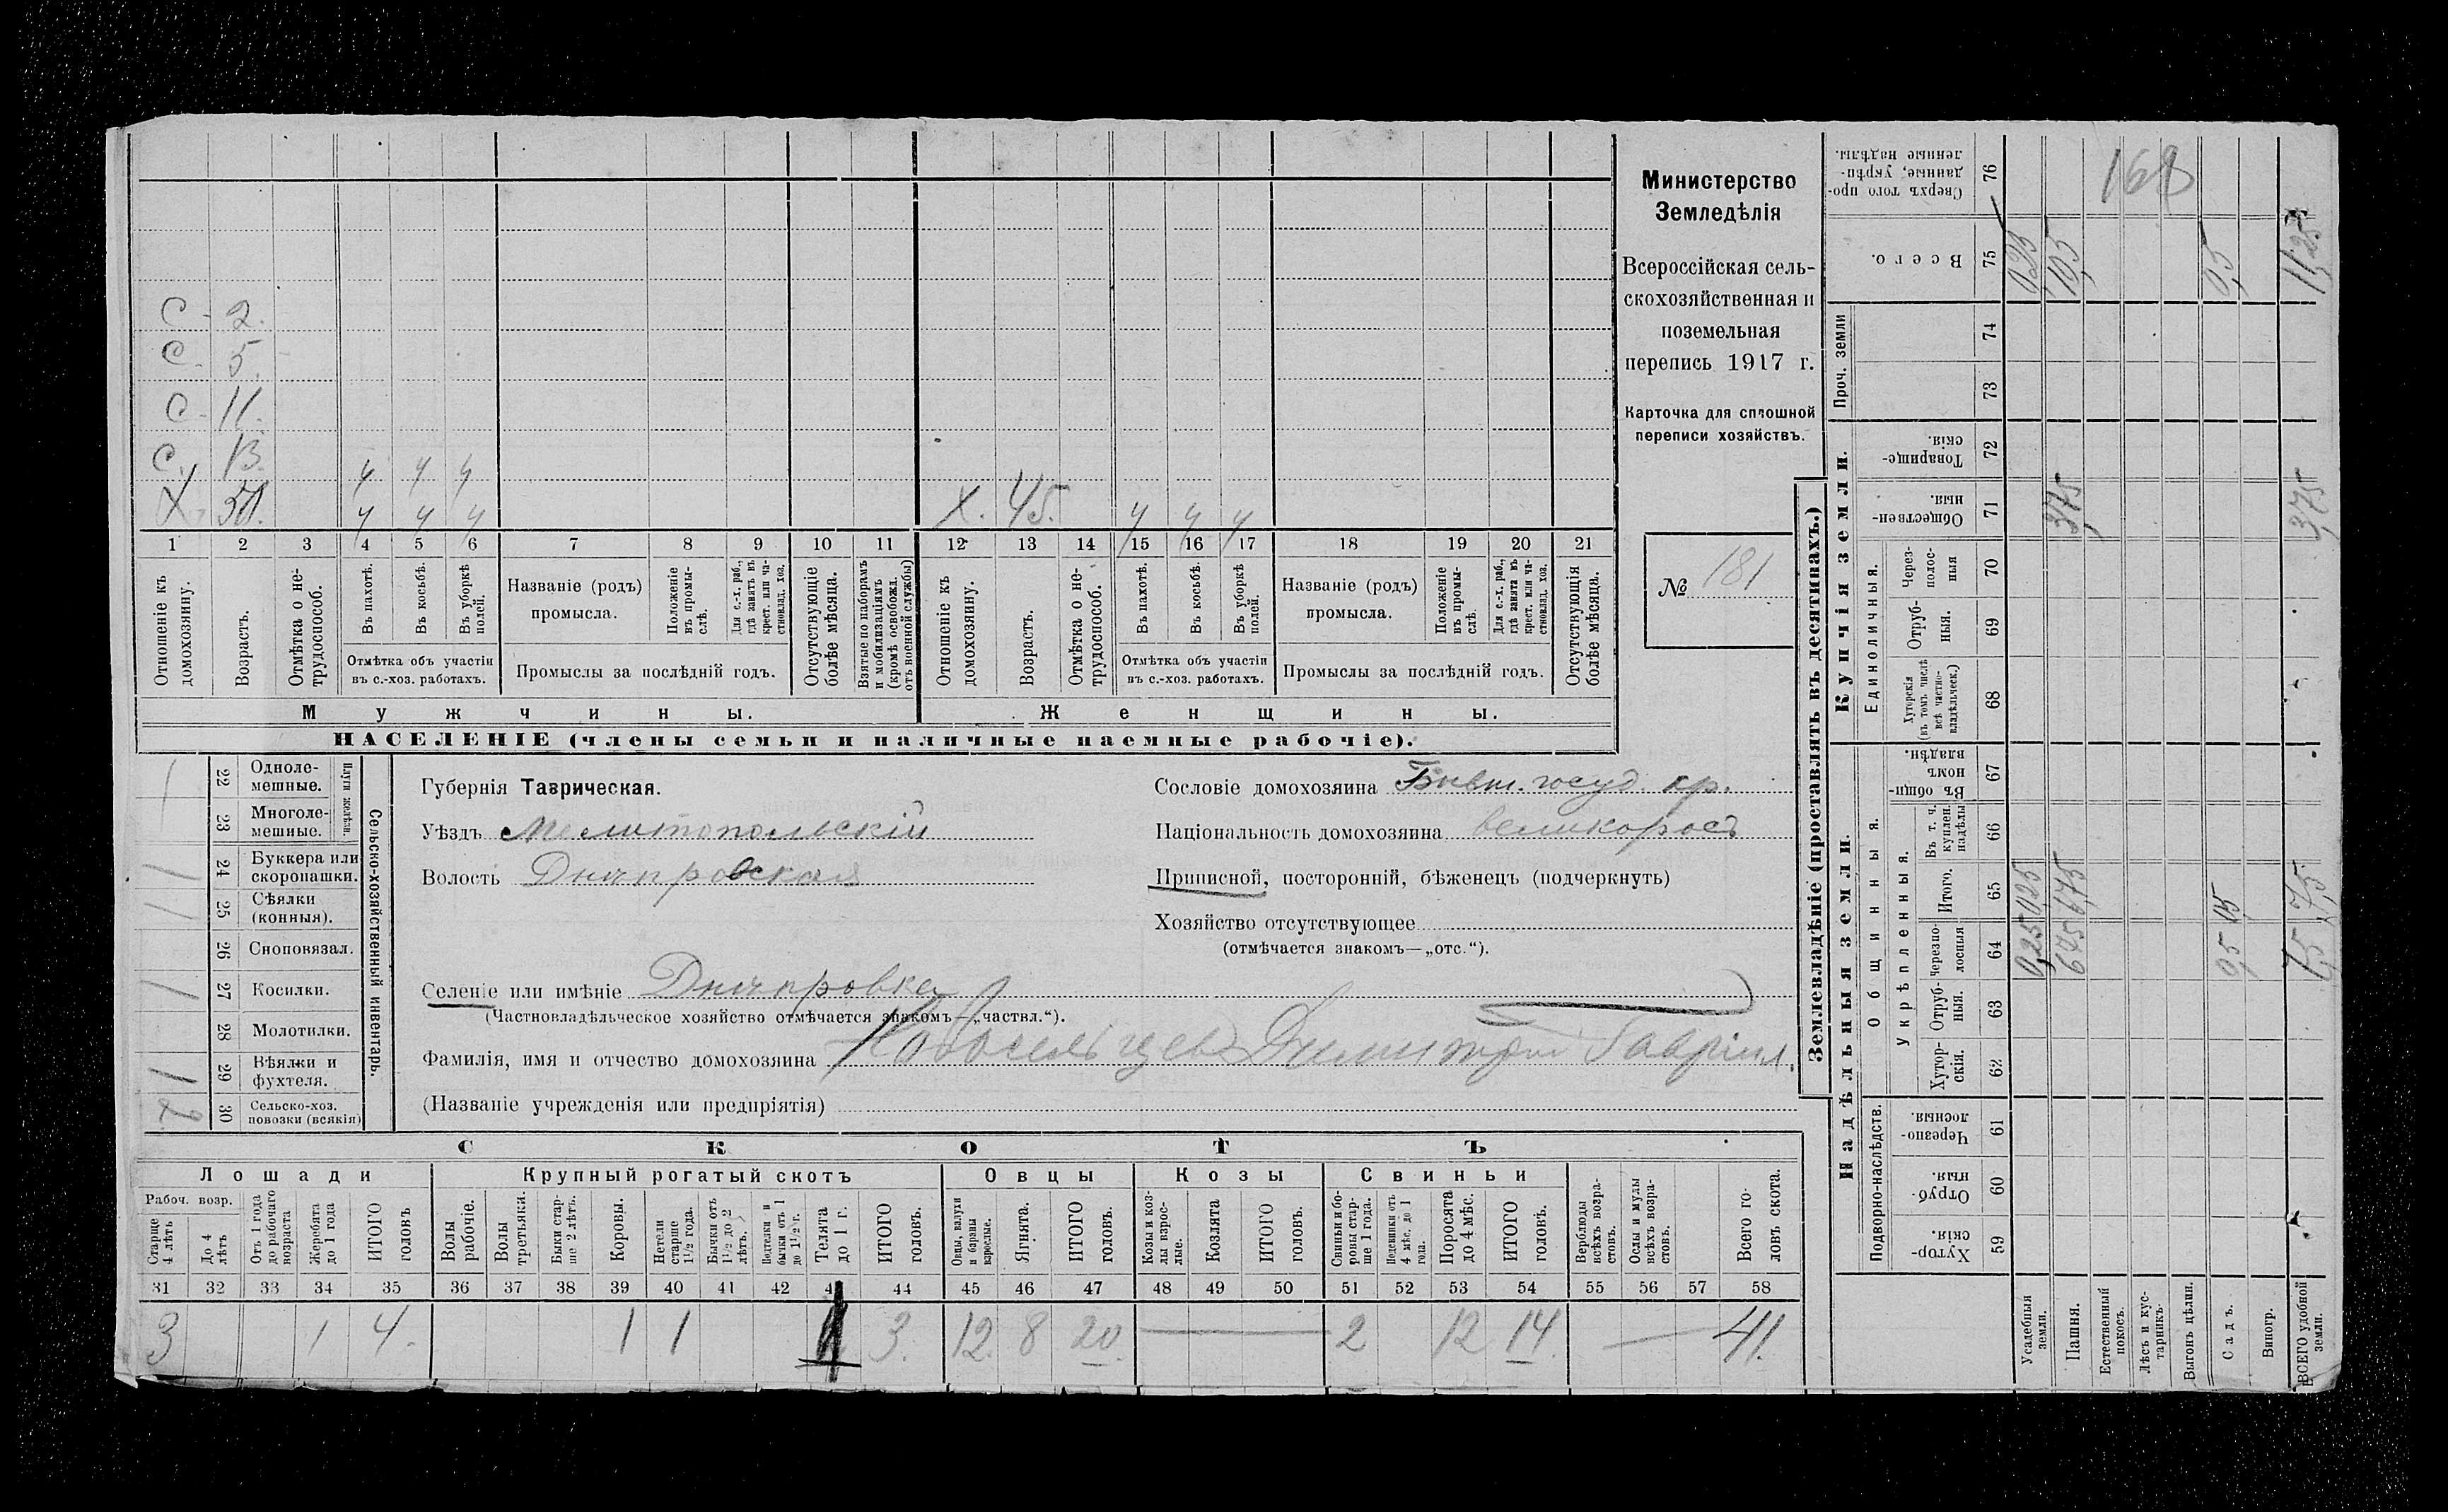 С - 2.
С - 5.
С - 11.
С. 13. ч ч ч
Х. 50. ч ч ч Х. 45. ч ч ч
1 2 3 4 5 6 7 8 9 10 11 12 13 14 15 16 17 18 19 20 21
Отношеніе къ домохозяину.
Возрастъ.
Отмѣтка о не-
трудоспособ.
Въ пахотѣ.
Въ косьбѣ.
Въ уборкѣ полей.
Отмѣтка объ участіи
въ с.-хоз. работахъ.
Названіе (родъ)
промысла.
Положеніе
въ промы-
слѣ.
Для с.-х. раб.,
гдѣ занятъ въ
крест. или ча-
стновлад. хоз.
Промыслы за послѣдній годъ.
Отсутствующіе
болѣе мѣсяца.
Взятые по наборамъ
и мобилизаціямъ
(кромѣ освобожд.
отъ военной службы)
Отношеніе къ
домохозяину.
Возрастъ.
Отмѣтка о не-
трудоспособ.
Въ пахотѣ.
Въ косьбѣ.
Въ уборкѣ
полей.
Отмѣтка объ участіи
въ с.-хоз. работахъ.
Названіе (родъ)
промысла.
Положеніе
въ промы-
слѣ.
Для с.-х. раб.,
гдѣ занята въ
крест. или ча-
стновлад. хоз.
Промыслы за послѣдній годъ.
Отсутствующія
болѣе мѣсяца.
Мужчины. Женщины.
НАСЕЛЕНІЕ (члены семьи и наличные наемные рабочіе).
Министерство
Земледѣлія
Всероссійская сель-
скохозяйственная и
поземельная
перепись 1917 г.
Карточка для сплошной
переписи хозяйствъ.
№ 181
1 22 Одноле-
мешные.
23 Многоле-
мешные.
Плуги желѣзн.
24 Буккера или
скоропашки.
25 Сѣялки
(конныя).
26 Сноповязал.
27 Косилки.
28 Молотилки.
1 29 Вѣялки и
фухтеля.
2 30 Сельско-хоз.
повозки (всякія)
Сельско-хозяйственный инвентарь.
Губернія Таврическая.
Уѣздъ Мелитопольскій
Волость Днѣпровская
Селеніе или имѣніе Днѣпровка
(Частновладѣльческое хозяйство отмѣчается знакомъ—„частвл.“).
Фамилія, имя и отчество домохозяина Новосельцевъ Димитрій Гавріил.
(Названіе учрежденія или предпріятія)
Сословіе домохозяина Бывш. госуд. кр.
Національность домохозяина великоросъ
Приписной, посторонній, бѣженецъ (подчеркнуть)
Хозяйство отсутствующее
(отмѣчается знакомъ—„отс.“).
СКОТЪ
Лошади Крупный рогатый скотъ Овцы Козы Свиньи
Рабоч. возр.
Старше
4 лѣтъ
До 4
лѣтъ
Отъ 1 года
до рабочаго
возраста
Жеребята
до 1 года
ИТОГО
головъ
Волы
рабочіе.
Волы
третьяки.
Быки стар-
ше 2 лѣтъ.
Коровы.
Нетели
старше
1½ года.
Бычки отъ
1½ до 2
лѣтъ.
Подтелки и
бычки отъ 1
до 1½ г.
Телята
до 1 г.
ИТОГО
головъ.
Овцы, валухи
и бараны
взрослые.
Ягнята.
ИТОГО
головъ.
Козы и коз-
лы взрос-
лые.
Козлята
ИТОГО
головъ.
Свиньи и бо-
ровы стар-
ше 1 года.
Подсвинки отъ
4 мѣс. до 1
года.
Поросята
до 4 мѣс.
ИТОГО
головъ.
Верблюды
всѣхъ возра-
стовъ.
Ослы и мулы
всѣхъ возра-
стовъ.
Всего го-
ловъ скота.
31 32 33 34 35 36 37 38 39 40 41 42 44 45 46 47 48 49 50 51 52 53 54 55 56 57 58
3 1 4. 1 1 1 3. 12. 8 20. — 2 12 14. — 41.
Землевладѣніе (проставлять въ десятинахъ.)
Купчія земли.
Надѣльныя земли.
Сверхъ того про-
данные, укрѣп-
ленные надѣлы.
76 168
Всего.
75 0,25 10,5 0,5 11,25
Проч. земли
74
73
Товарище-
скія.
72
Обществен-
ныя.
71 3,75 3,75
Единоличныя.
Через-
полос-
ныя
70
Отруб-
ныя.
69
Хуторскія
(въ томъ числѣ
всѣ частно-
владѣльческ.)
68
Общинныя.
Въ общин-
номъ
владѣн.
67
Укрѣпленныя.
Въ т. ч.
куплен.
надѣлы
66
Итого.
65 0,25 6,75 0,5 7,5
Черезпо-
лосныя
64 0,25 6,75 0,5 7,5
Отруб-
ныя.
63
Хутор-
скія.
62
Подворно-наслѣдств.
Черезпо-
лосныя.
61
Отруб-
ныя.
60
Хутор-
скія.
59
Усадебныя
земли.
Пашня.
Естественный
покосъ.
Лѣсъ и кус-
тарникъ.
Выгонъ цѣлин.
Садъ.
Виногр.
ВСЕГО удобной
земли.